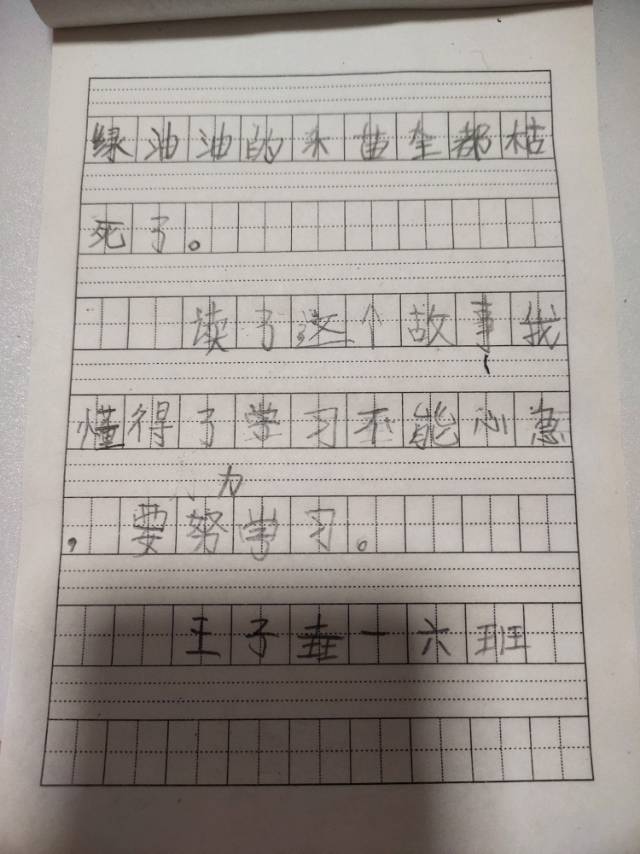 绿油油的禾苗全都枯
死了。
读了这个故事我
懂得了学习不能心急
力
,要努学习。
王子 一六班